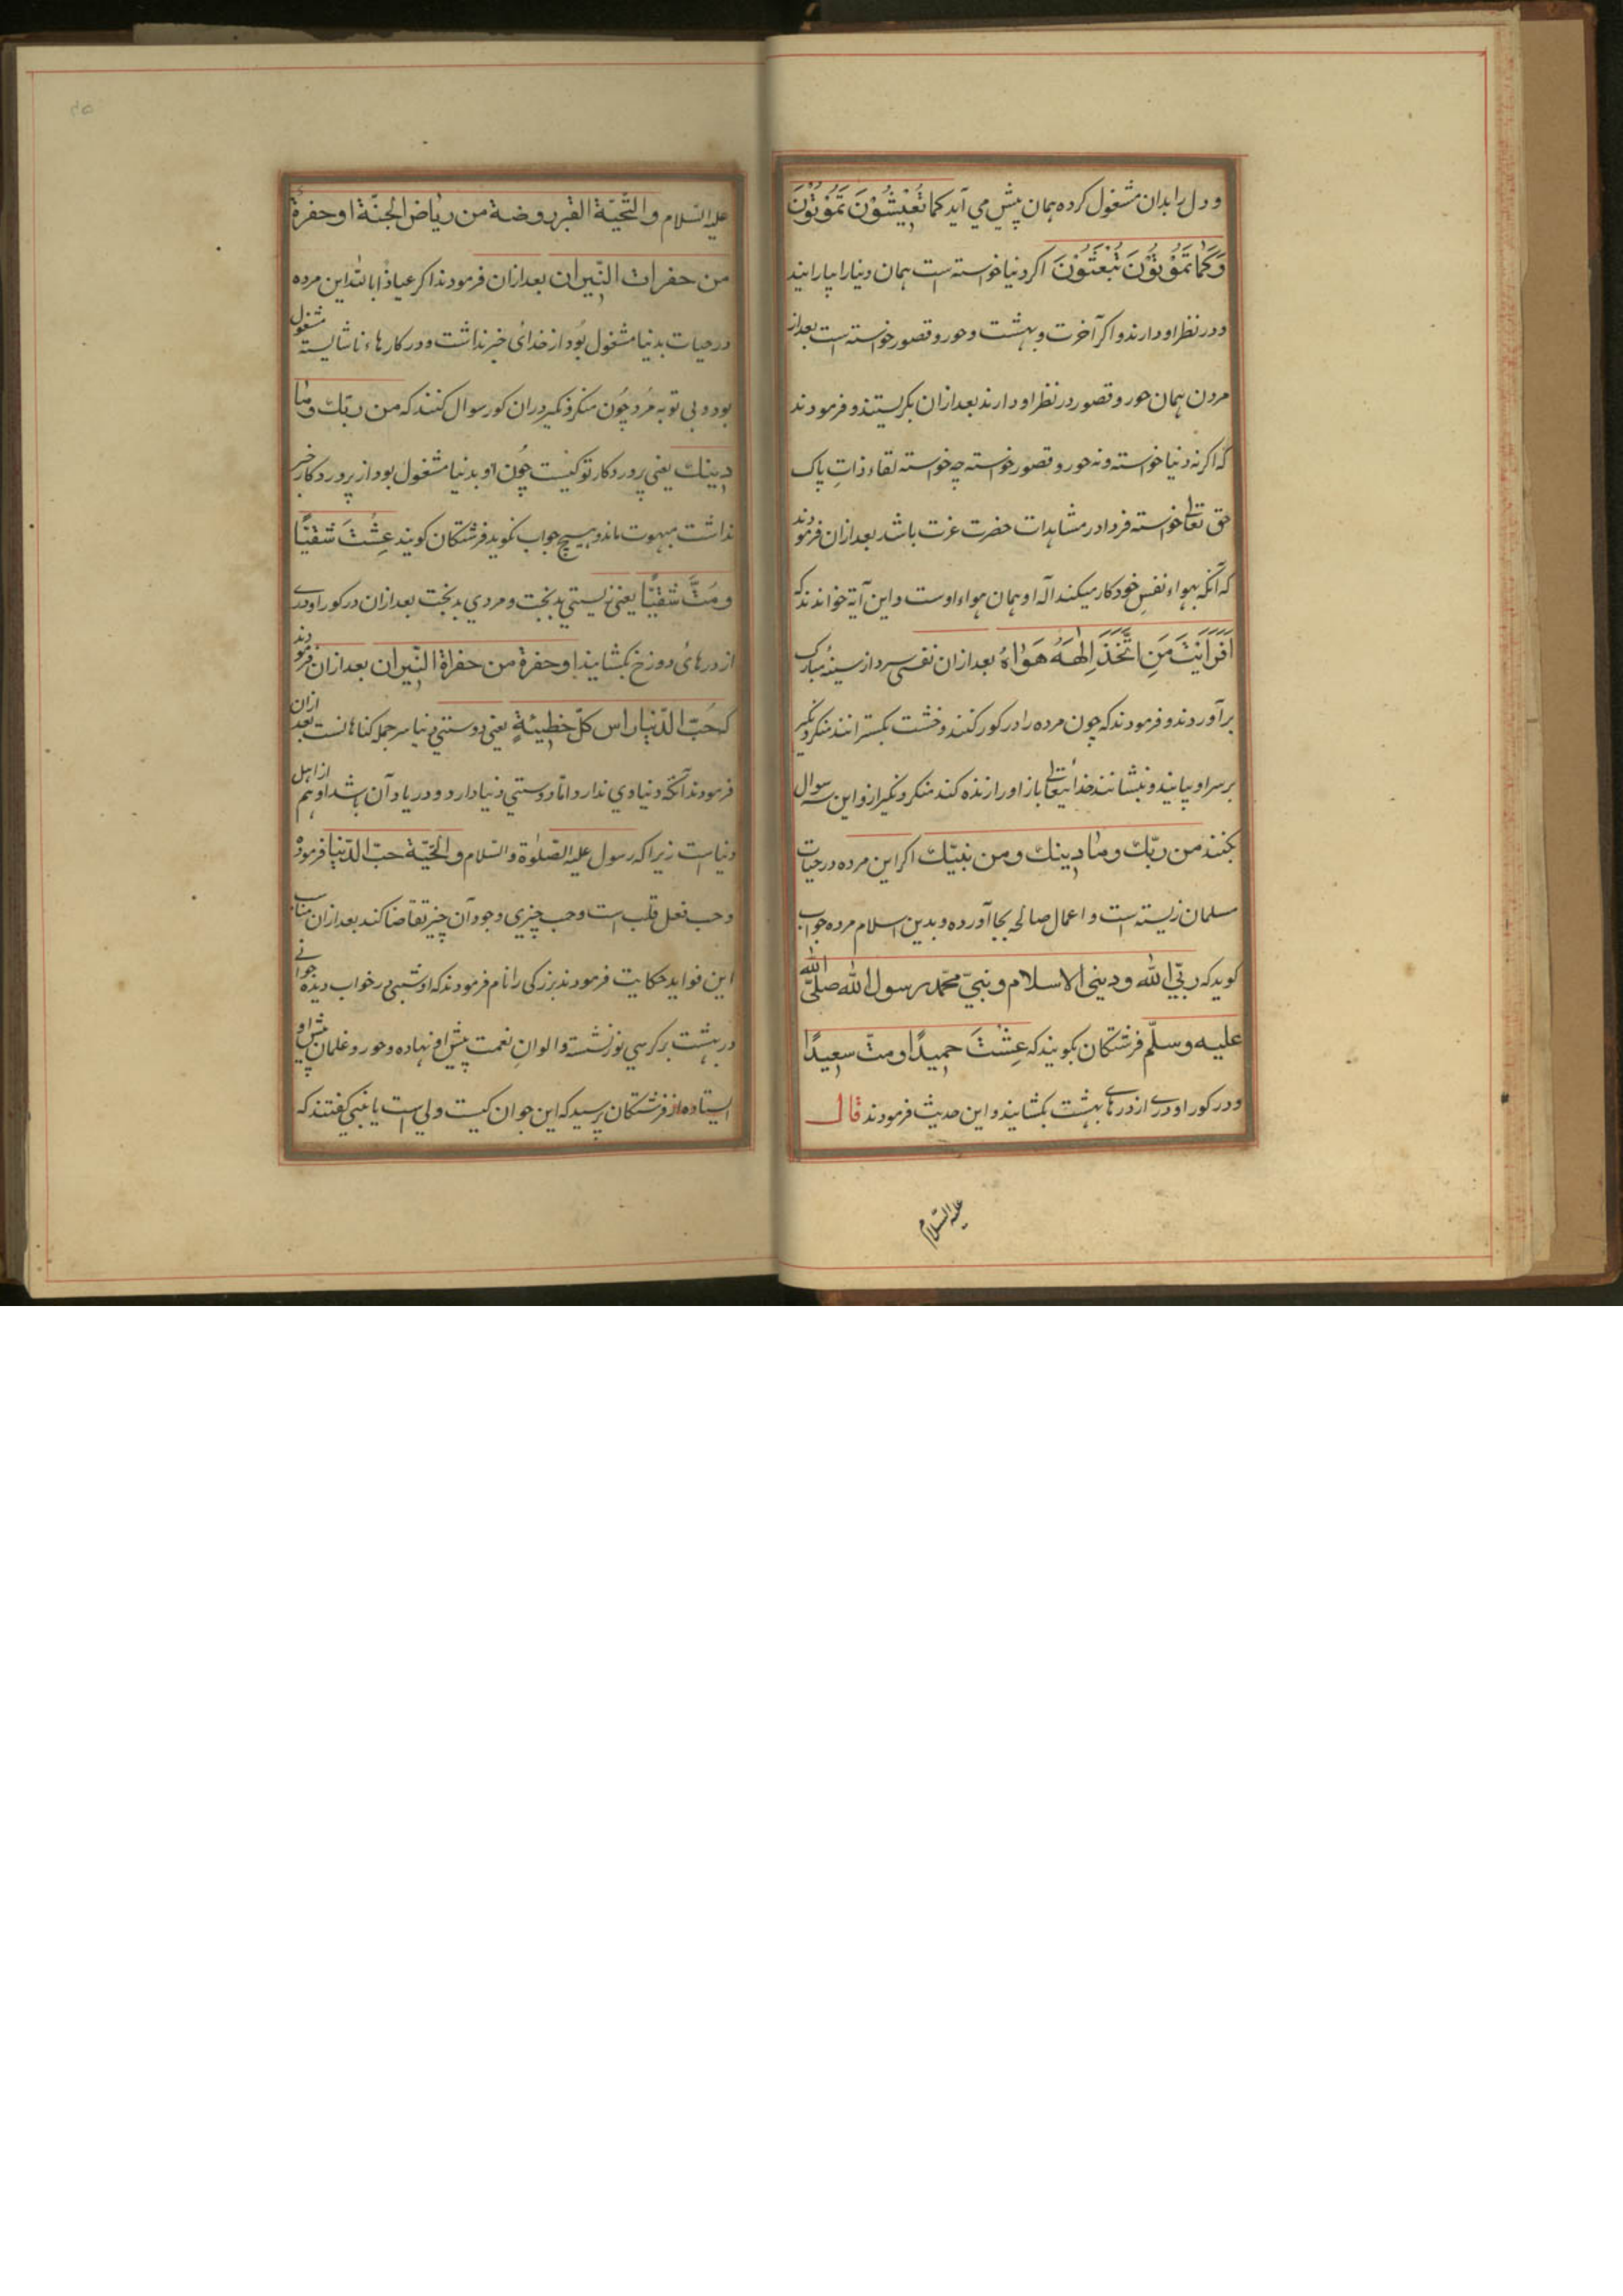 و دل را بدان مشغول کرده همان پیش می آید کما تُعیشُونَ تَمُوتُونَ
وَکَما تَمُوتُونَ تُبعَثُونَ اکر دنیا خواسته است همان دنیا را بیارایند
و در نظر او دارند و اکر آخرت و بهشت و حور و قصور خواسته است بعد از
مردن همان حور و قصور در نظر او دارند بعد ازان بکریستند و فرمودند
که اکر نه دنیا خواسته و نه حور و قصور خواسته چه خواسته لقاء ذاتِ پاک
حق تعالی خواسته فردا در مشاهدات حضرت عزت باشد بعد ازان فرمودند
که آنکه بهواء نفسِ خود کار میکند اله او همان هواء اوست و این آیة خواندند که
اَفَرَاَیْتَ مَنِ اتَّخَذَ اِلٰهَهُ هَوٰاهُ بعد ازان نفسی سرد از سینهٔ مبارک
برآوردند و فرمودند که چون مرده را در کور کنند و خشت بکسترانند منکر و نکیر
بر سر او بیایند و بنشانند خدائیتعالی باز او را زنده کند منکر و نکیر ازو این سه سوال
بکنند من ربّک وما دینک ومن نبیّک اکر این مرده در حیات
مسلمان زیسته است و اعمال صالحه بجا آورده و بدین اسلام مرده جواب
کوید که ربّی الله ودینی الاسلام ونبیّ محمّد رسول الله صلّی الله
علیه وسلّم فرشتکان بکویند که عِشْتَ حمیدًا ومتّ سعیدًا
و در کور او دری از درهای بهشت بکشایند و این حدیث فرمودند قال
علیه السّلام
علیه السّلام و التّحیّة القبر روضة من ریاض الجنّة او حفرة
من حفرات النّیران بعد ازان فرمودند اکر عیاذًا بالله این مرده
در حیات بدنیا مشغول بُود از خدائ خبر نداشت و در کارهاء ناشایسته مشغول
بود و بی توبه مُرد چُون منکر و نکیر دران کور سوال کنند که من ربّک وما
دینک یعنی پروردکار تو کیست چُون او بدنیا مشغول بود از پروردکار خبر
نداشت مبهوت ماند و هیچ جواب نکوید فرشتکان کویند عِشْتَ شقیًّا
ومُتَّ شقیًّا یعنی زیستی بدبخت و مردی بدبخت بعد ازان در کور او دری
از درهائ دوزخ بکشایند او حفرة من حفراة النّیران بعد ازان فرمودند
که حُبّ الدّنیا راس کلّ خطیئةٍ یعنی دوستی دنیا سر جمله کناهانست بعد ازان
فرمودند آنکه دنیاوی ندارد امّا دوستی دنیا دارد و در یاد آن باشد او هم از اهل
دنیاست زیرا که رسول علیه الصّلوٰة والسّلام والتحیّة حبّ الدّنیا فرموده
و حب فعل قلب است و حب چیزی وجود آن چیز تقاضا کند بعد ازان مناسب
این فواید حکایت فرمودند بزرکی را نام فرمودند که او شبی در خواب دیده جوانی
در بهشت بر کرسی نور نشسته و الوانِ نعمت پیش او نهاده و حور و غلمان پیش او
ایستاده از فرشتکان پرسید که این جوان کیست ولی است یا نبی کفتند که